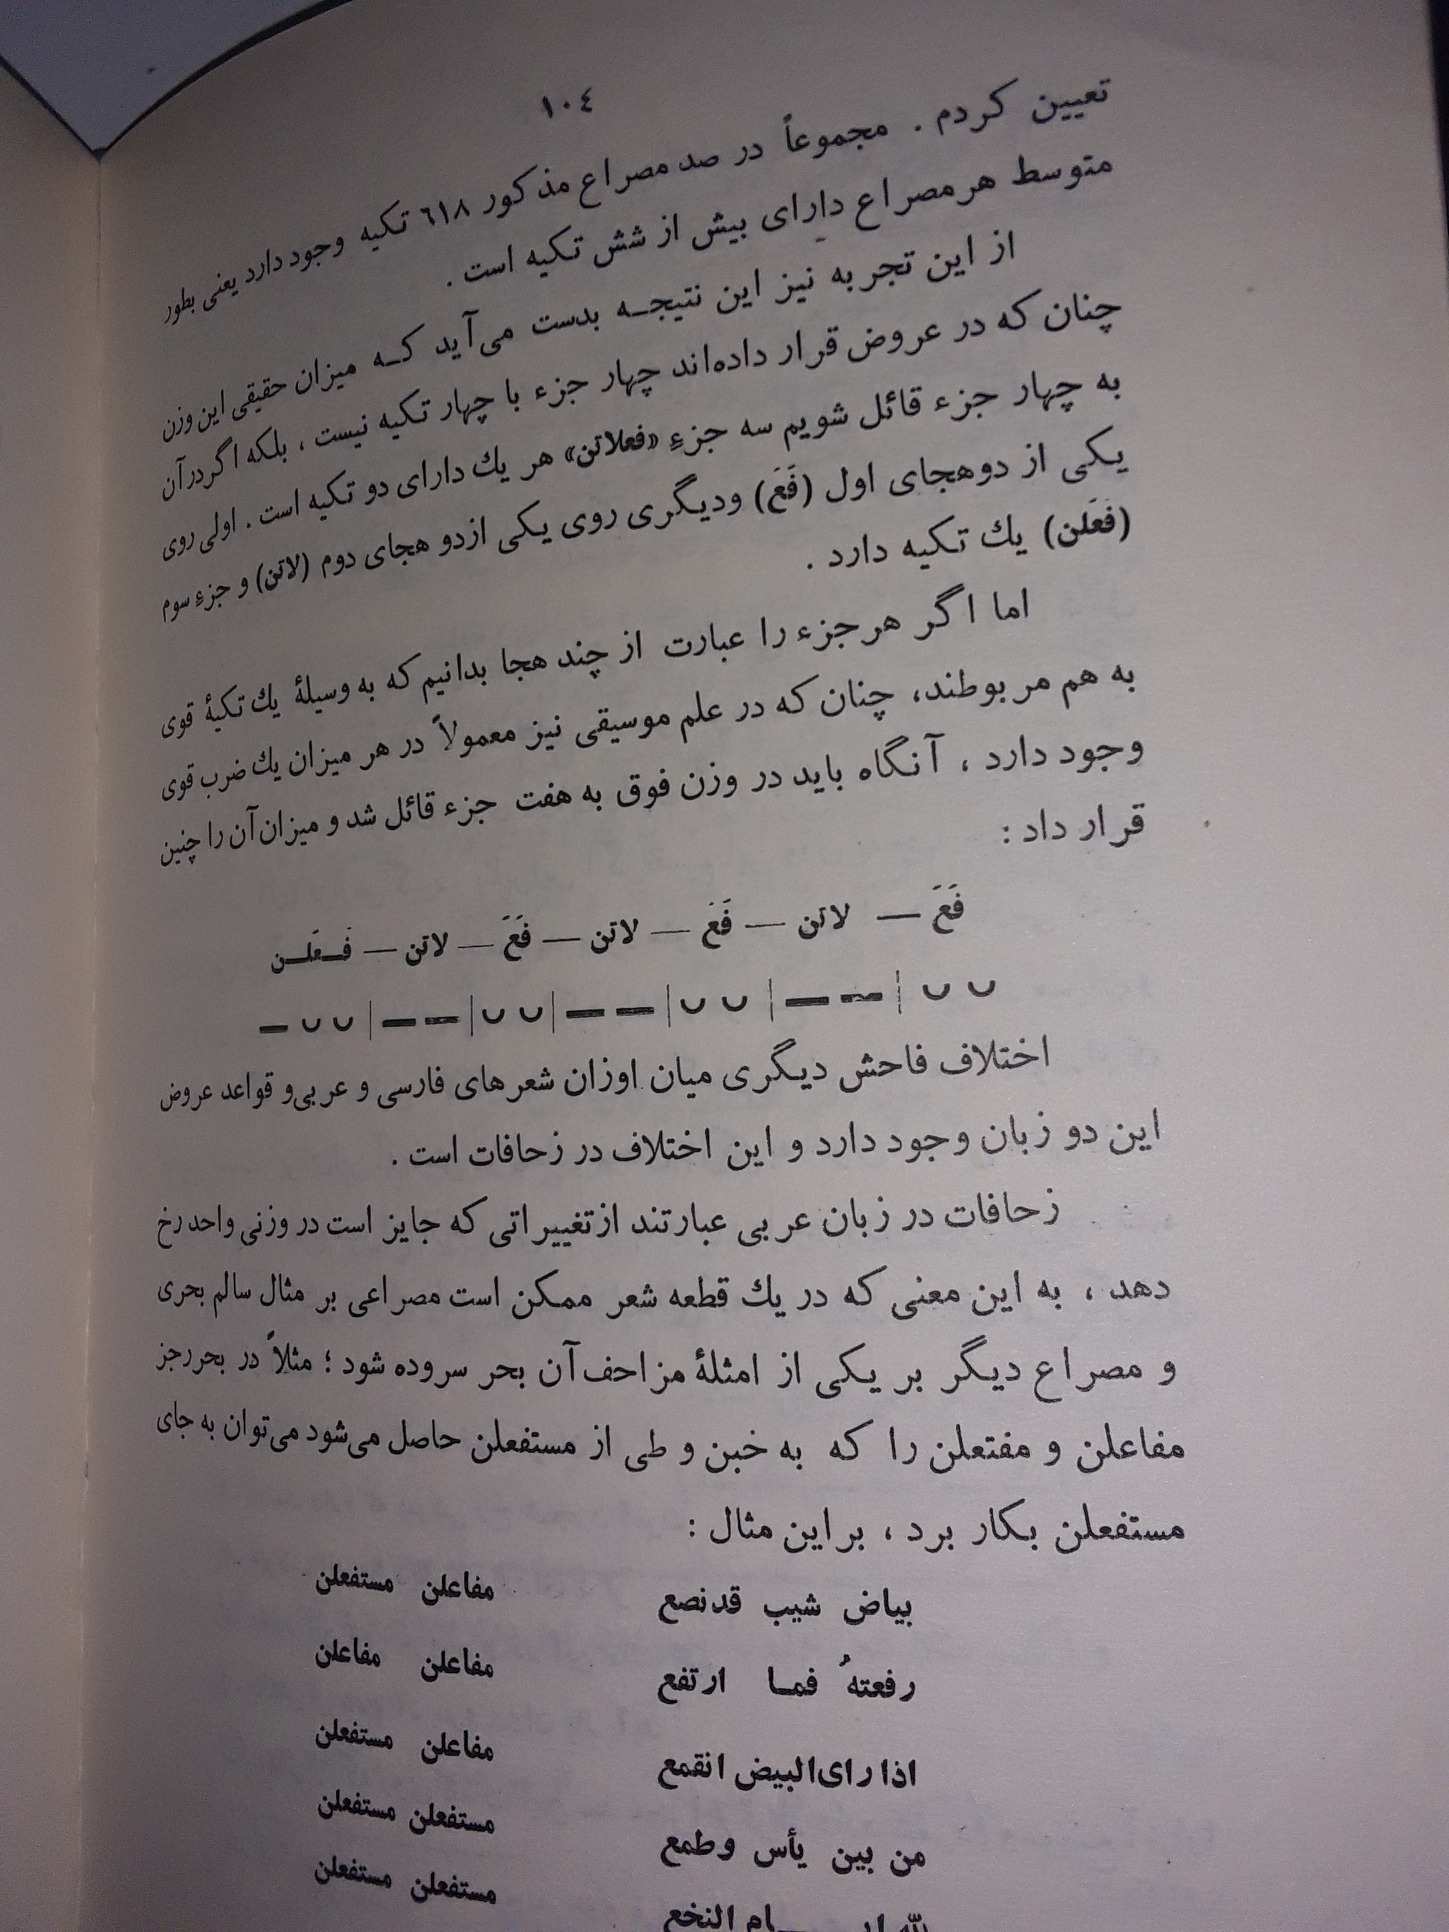 ۱۰٤
تعیین کردم . مجموعاً در صد مصراع مذکور ٦۱۸ تکیه وجود دارد یعنی بطور
متوسط هر مصراع دارای بیش از شش تکیه است .
از این تجربه نیز این نتیجه بدست می‌آید که میزان حقیقی این وزن
چنان که در عروض قرار داده‌اند چهار جزء با چهار تکیه نیست ، بلکه اگر در آن
به چهار جزء قائل شویم سه جزءِ «فعلاتن» هر یك دارای دو تکیه است . اولی روی
یکی از دوهجای اول (فَعَ) و دیگری روی یکی از دو هجای دوم (لاتن) و جزءِ سوم
(فعَلن) یك تکیه دارد .
اما اگر هر جزء را عبارت از چند هجا بدانیم که به وسیلهٔ یك تکیهٔ قوی
به هم مربوطند، چنان که در علم موسیقی نیز معمولاً در هر میزان یك ضرب قوی
وجود دارد ، آنگاه باید در وزن فوق به هفت جزء قائل شد و میزان آن را چنین
قرار داد :
فَعَ — لاتن — فَعَ — لاتن — فَعَ — لاتن — فَعَلن
∪ ∪ | — — | ∪ ∪ | — — | ∪ ∪ | — — | ∪ ∪ —
اختلاف فاحش دیگری میان اوزان شعرهای فارسی و عربی و قواعد عروض
این دو زبان وجود دارد و این اختلاف در زحافات است .
زحافات در زبان عربی عبارتند از تغییراتی که جایز است در وزنی واحد رخ
دهد ، به این معنی که در یك قطعه شعر ممکن است مصراعی بر مثال سالم بحری
و مصراع دیگر بر یکی از امثلهٔ مزاحف آن بحر سروده شود ؛ مثلاً در بحر رجز
مفاعلن و مفتعلن را که به خبن و طی از مستفعلن حاصل می‌شود می‌توان به جای
مستفعلن بکار برد ، بر این مثال :
بیاض شیب قدنصع مفاعلن مستفعلن
رفعتهُ فما ارتفع مفاعلن مفاعلن
اذا رای البیض انقمع مفاعلن مستفعلن
من بین یأس وطمع مستفعلن مستفعلن
لله النخع مستفعلن مستفعلن